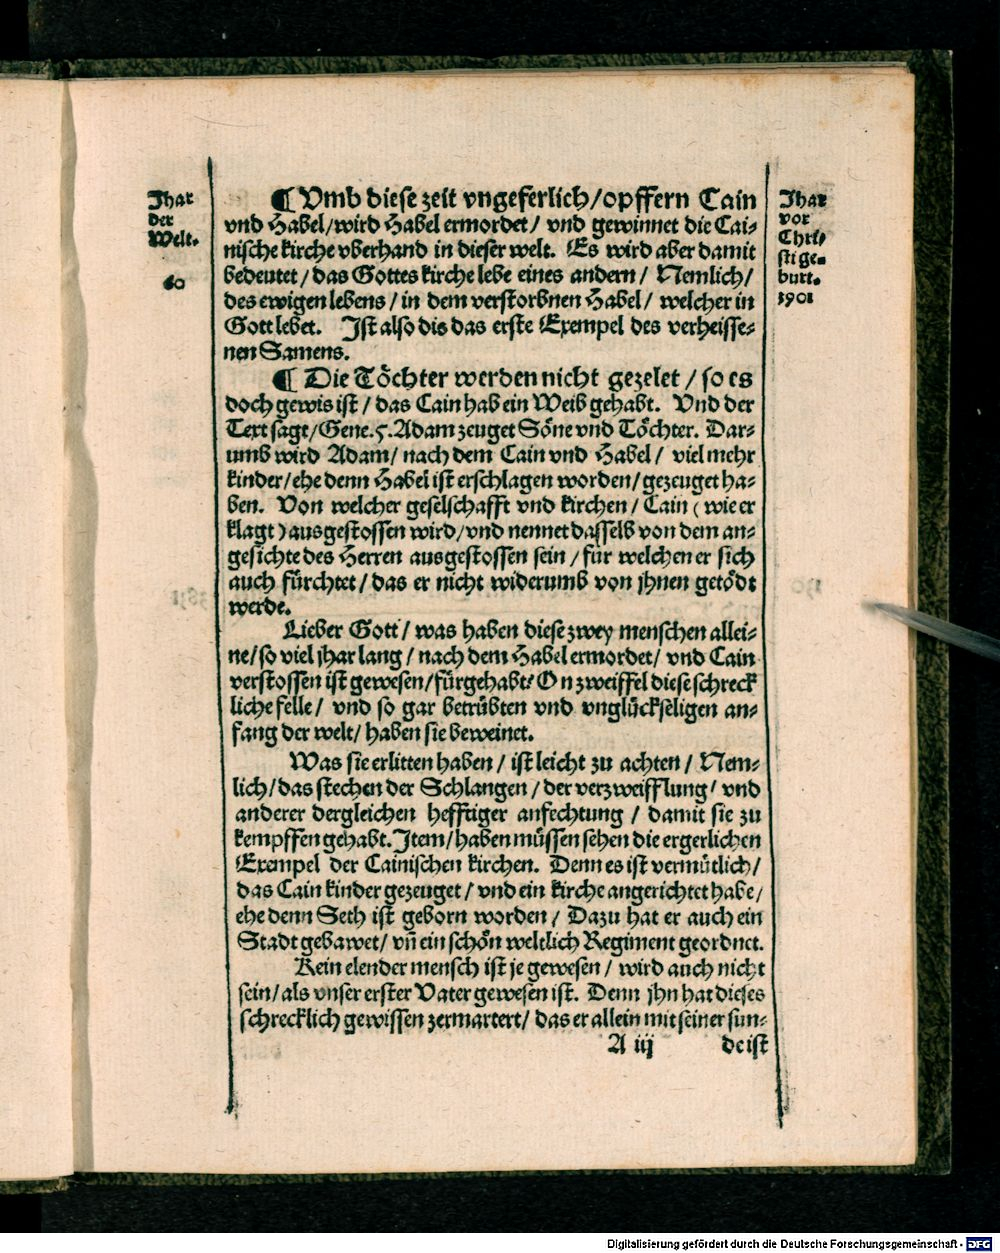 Jhar
der
Welt.
60
¶ Vmb diese zeit vngeferlich/opffern Cain
vnd Habel/wird Habel ermordet/ vnd gewinnet die Cai-
nische kirche vberhand in dieser welt. Es wird aber damit
bedeutet/das Gottes kirche lebe eines andern/ Nemlich/
des ewigen lebens/ in dem verstorbnen Habel/ welcher in
Gott lebet. Jst also dis das erste Exempel des verheisse-
nen Samens.
¶ Die Töchter werden nicht gezelet / so es
doch gewis ist/ das Cain hab ein Weib gehabt. Vnd der
Text sagt/Gene.5. Adam zeuget Söne vnd Töchter. Dar-
umb wird Adam/ nach dem Cain vnd Habel/ viel mehr
kinder/ehe denn Habel ist erschlagen worden/gezeuget ha-
ben. Von welcher geselschafft vnd kirchen/ Cain (wie er
klagt) ausgestossen wird/vnd nennet dasselb von dem an-
gesichte des Herren ausgestossen sein/für welchen er sich
auch fürchtet/ das er nicht widerumb von jhnen getödt
werde.
Lieber Gott/ was haben diese zwey menschen allei-
ne/so viel jhar lang/ nach dem Habel ermordet/ vnd Cain
verstossen ist gewesen/fürgehabt? On zweiffel diese schreck
liche felle/ vnd so gar betrübten vnd vnglückseligen an-
fang der welt/ haben sie beweinet.
Was sie erlitten haben/ ist leicht zu achten/ Nem-
lich/das stechen der Schlangen/ der verzweifflung/ vnd
anderer dergleichen hefftiger anfechtung / damit sie zu
kempffen gehabt. Jtem/haben müssen sehen die ergerlichen
Exempel der Cainischen kirchen. Denn es ist vermütlich/
das Cain kinder gezeuget/ vnd ein kirche angerichtet habe/
ehe denn Seth ist geborn worden/ Dazu hat er auch ein
Stadt gebawet/ vñ ein schön weltlich Regiment geordnet.
Kein elender mensch ist je gewesen/ wird auch nicht
sein/als vnser erster Vater gewesen ist. Denn jhn hat dieses
schrecklich gewissen zermartert/ das er allein mit seiner sun-
A iij de ist
Jhar
vor
Chri/
sti ge-
burt.
3901
Digitalisierung gefördert durch die Deutsche Forschungsgemeinschaft - DFG